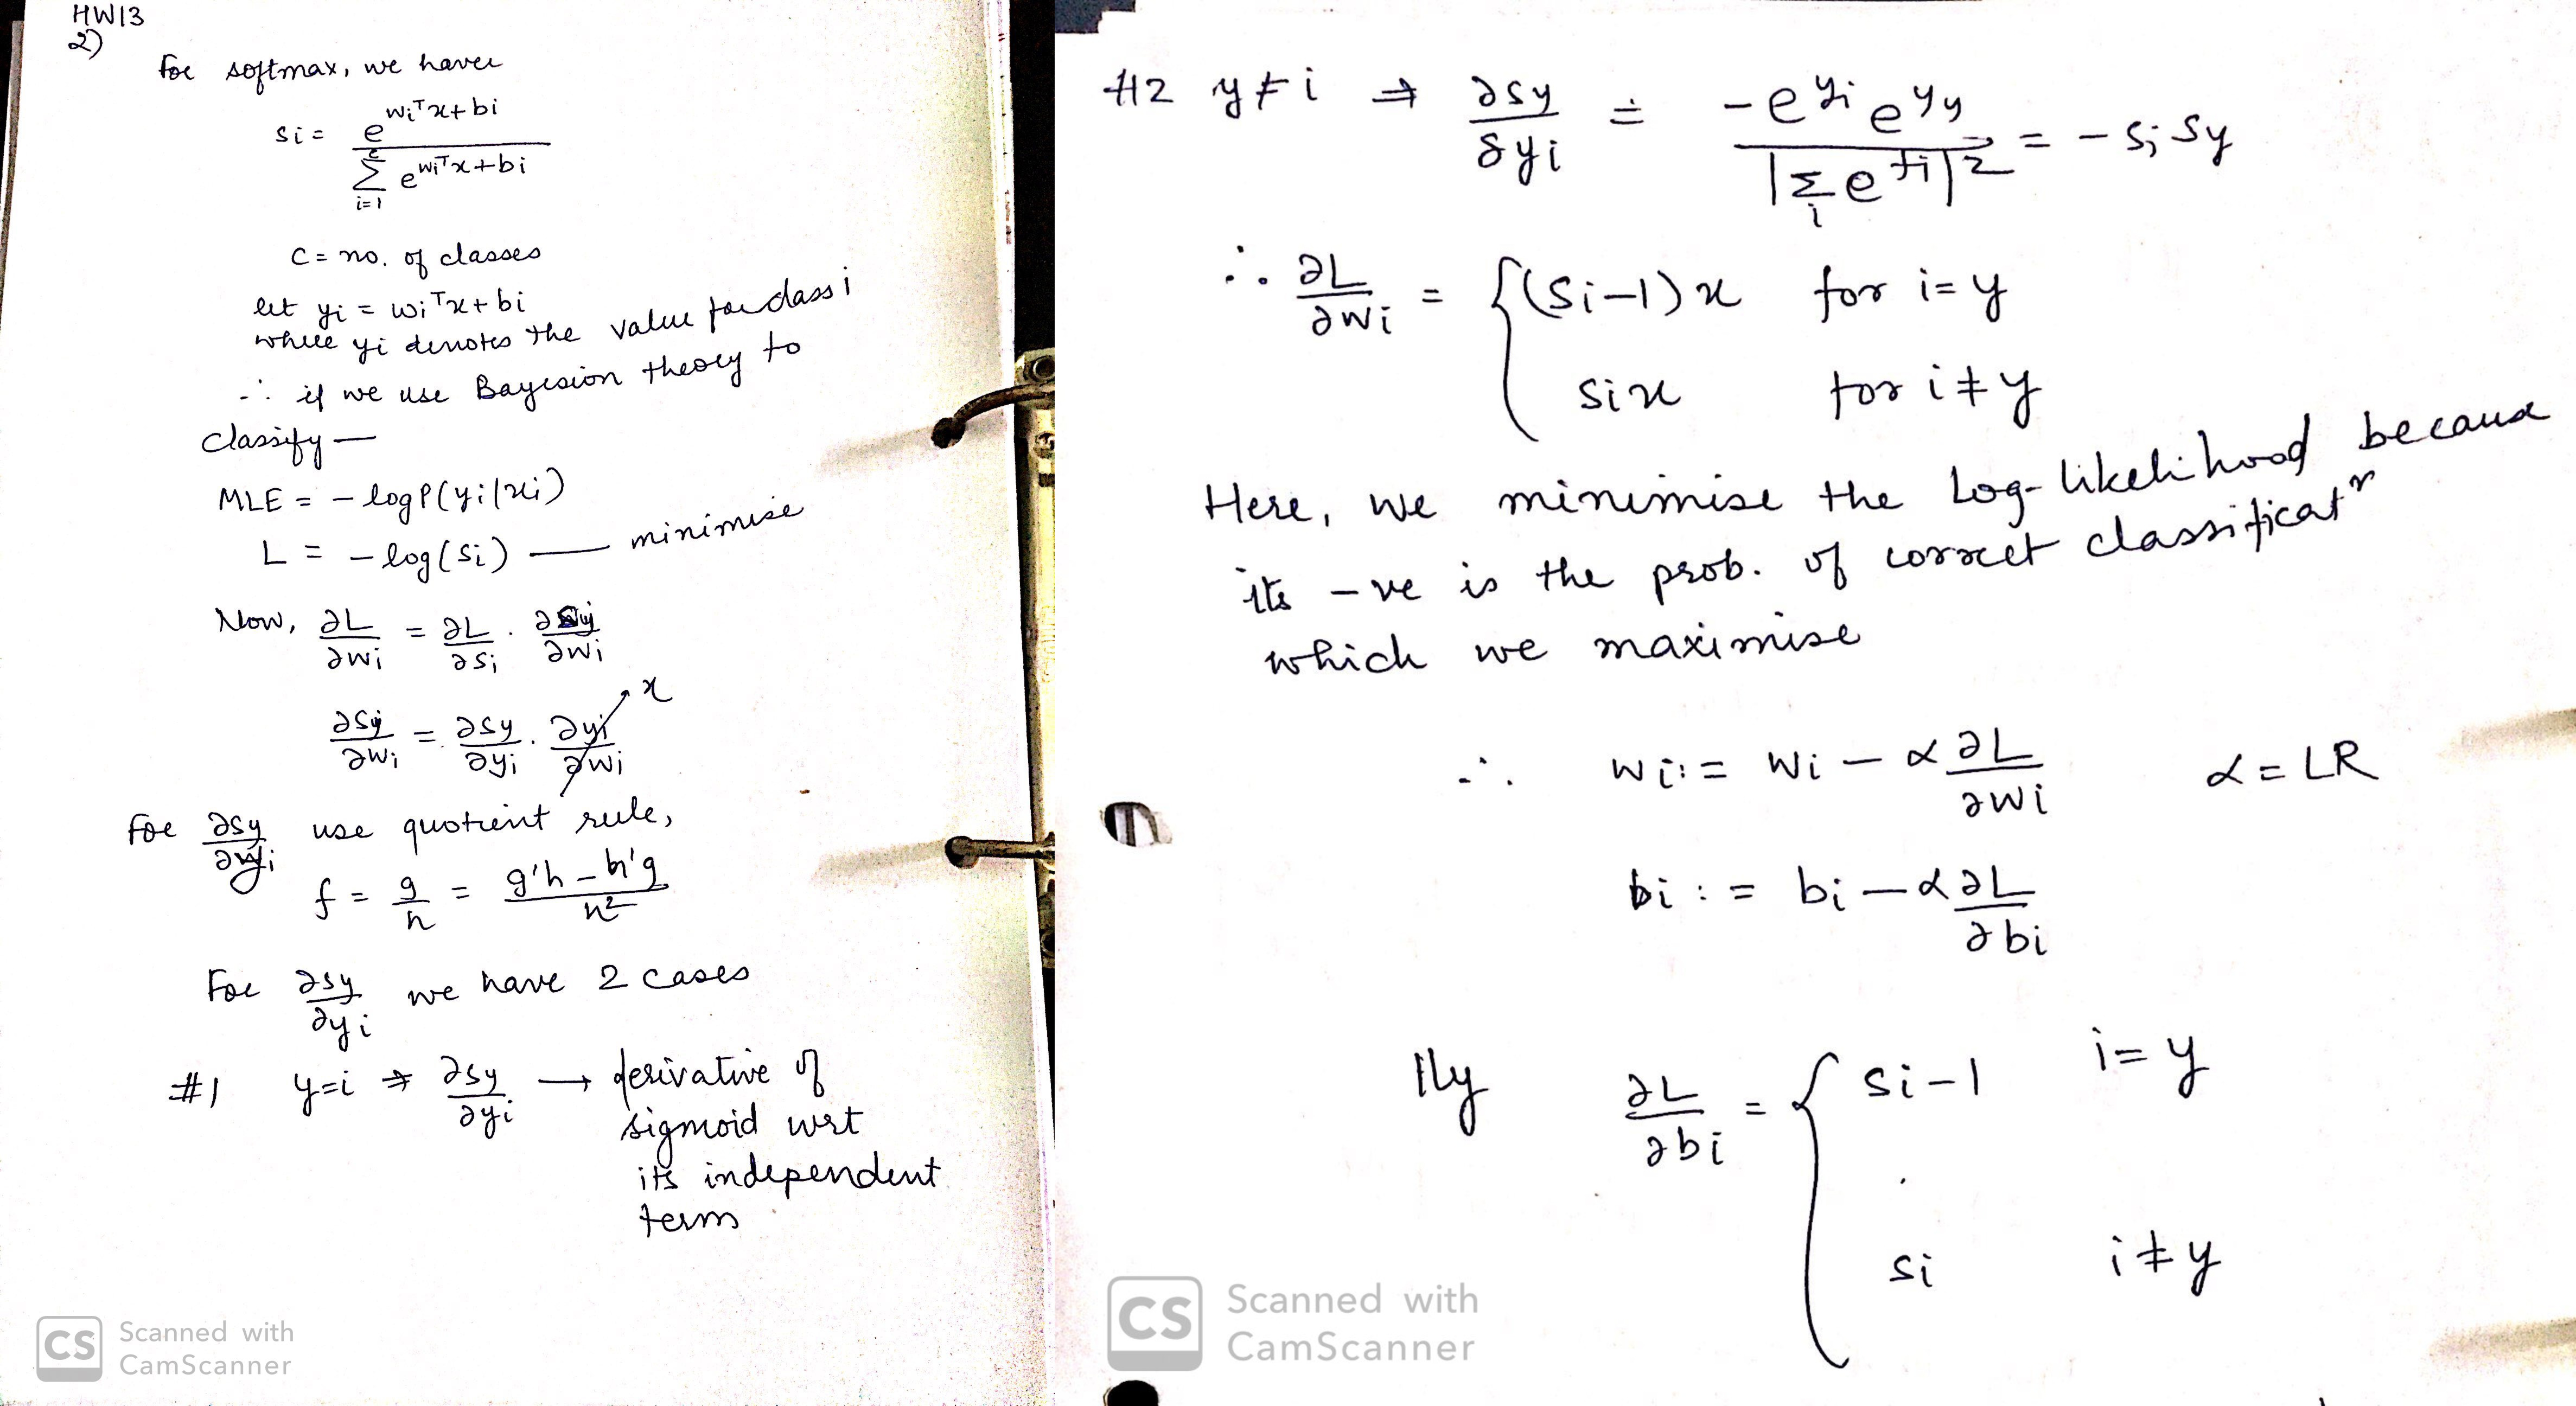 HW13
2)
For softmax, we have
si = e^{wiᵀx+bi} / Σ_{i=1}^{c} e^{wiᵀx+bi}
C = no. of classes
let yi = wiᵀx+bi
where yi denotes the value for class i
∴ if we use Bayesion theory to
classify —
MLE = - log P(yi|xi)
L = - log(si) — minimise
Now, ∂L/∂wi = ∂L/∂si · ∂sy/∂wi
∂sy/∂wi = ∂sy/∂yi · ∂yi/∂wi → x
For ∂sy/∂yi use quotient rule,
f = g/h = (g'h - h'g)/h²
For ∂sy/∂yi we have 2 cases
#1 y=i ⇒ ∂sy/∂yi → derivative of
sigmoid wrt
its independent
term
CS Scanned with
CamScanner
#2 y≠i ⇒ ∂sy/δyi = -e^{yi} e^{yy} / |Σ_i e^{yi}|² = - si sy
∴ ∂L/∂wi = { (si-1)x for i=y
six for i≠y
Here, we minimise the Log-likelihood because
its -ve is the prob. of correct classificatⁿ
which we maximise
∴ wi := wi - α ∂L/∂wi α = LR
bi := bi - α ∂L/∂bi
lly ∂L/∂bi = { si-1 i=y
si i≠y
CS Scanned with
CamScanner